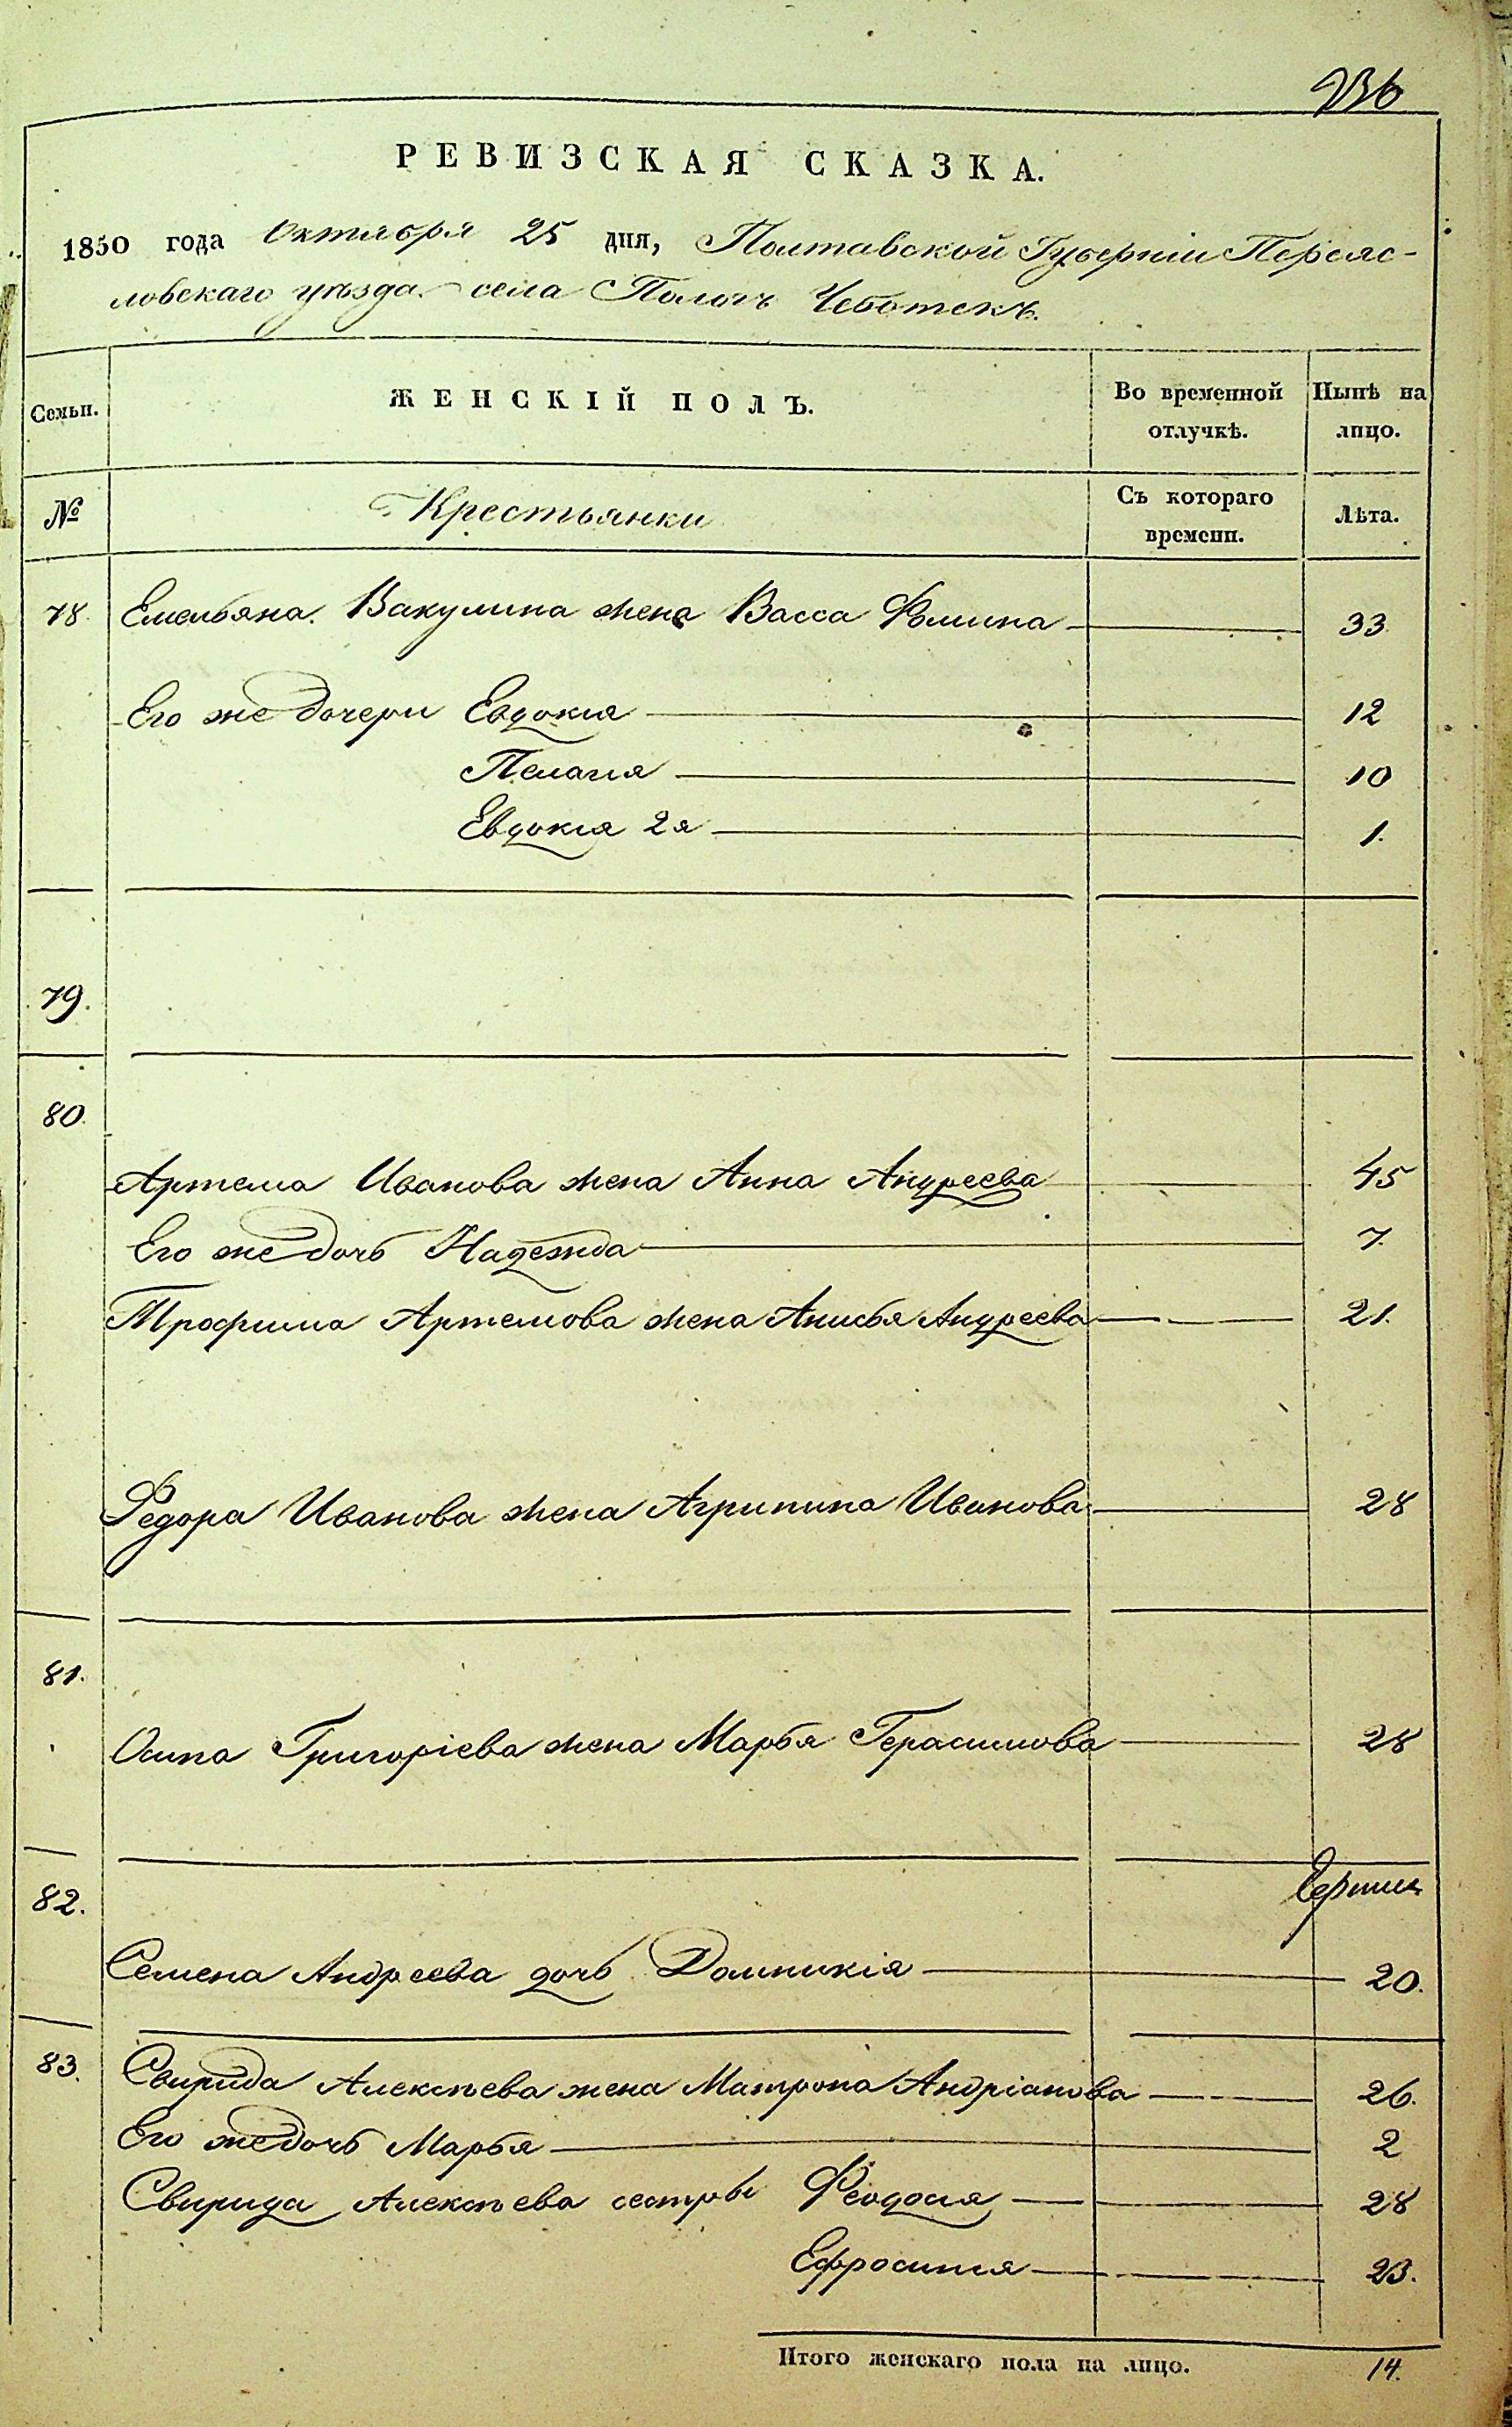 236
РЕВИЗСКАЯ СКАЗКА.
1850 года Октября 25 дня, Полтавской Губерніи Переяс-
ловскаго уѣзда села Пологъ Чеботекъ.
Семьи.
ЖЕНСКІЙ ПОЛЪ.
Во временной отлучкѣ.
Нынѣ на лицо.
№
Крестьянки
Съ котораго времени.
Лѣта.
78. Емельяна Вакулина жена Васса Фомина 33
Его же дочери Евдокія 12
Пелагія 10
Евдокія 2я 1.
79.
80.
Артема Иванова жена Анна Андреева 45
Его же дочь Надежда 7.
Трофима Артемова жена Анисья Андреева 21.
Федора Иванова жена Агрипина Иванова 28
81.
Осипа Григоріева жена Марья Герасимова 28
82.
Семена Андреева дочь Домникія 20.
83. Свирида Алексѣева жена Матрона Андріанова 26.
Его же дочь Марья 2
Свирида Алексѣева сестры Феодосія 28
Ефросинія 23.
Итого женскаго пола на лицо. 14.